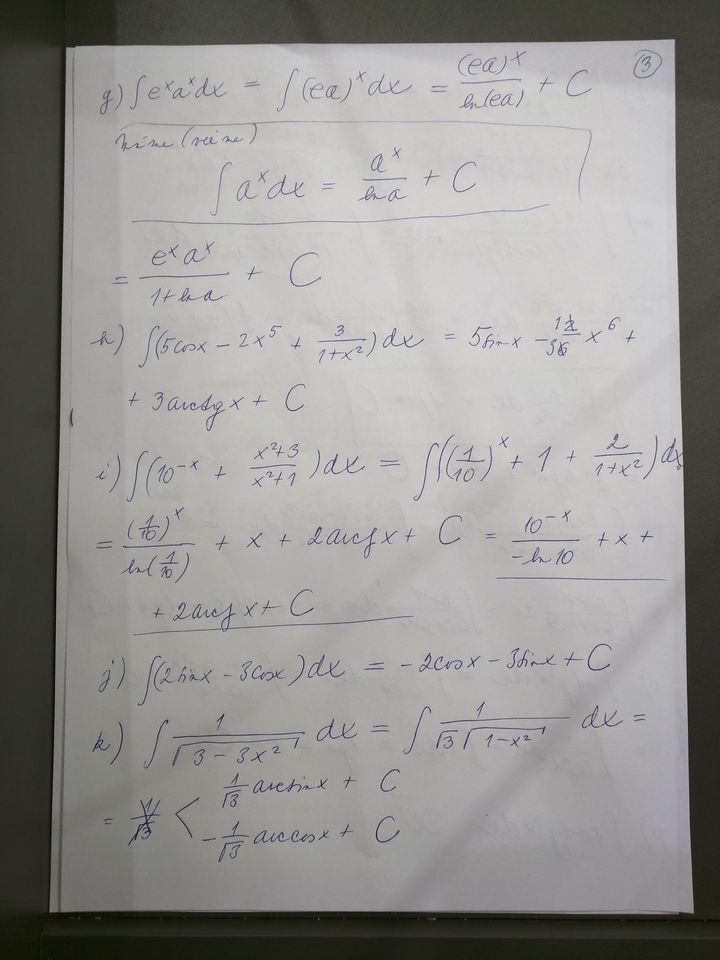 3
g) ∫e^x a^x dx = ∫(ea)^x dx = (ea)^x / ln(ea) + C
víme
∫a^x dx = a^x / ln a + C
= e^x a^x / 1 + ln a + C
h) ∫(5cosx − 2x^5 + 3/(1+x^2)) dx = 5sinx − 1/3 x^6 +
+ 3arctgx + C
i) ∫(10^-x + (x^2+3)/(x^2+1)) dx = ∫((1/10)^x + 1 + 2/(1+x^2)) dx
= (1/10)^x / ln(1/10) + x + 2arctg x + C = 10^-x / −ln 10 + x +
+ 2arctg x + C
j) ∫(2sinx − 3cosx) dx = −2cosx − 3sinx + C
k) ∫ 1/√(3 − 3x^2) dx = ∫ 1/(√3 √(1−x^2)) dx =
= < 1/√3 arcsinx + C
− 1/√3 arccosx + C